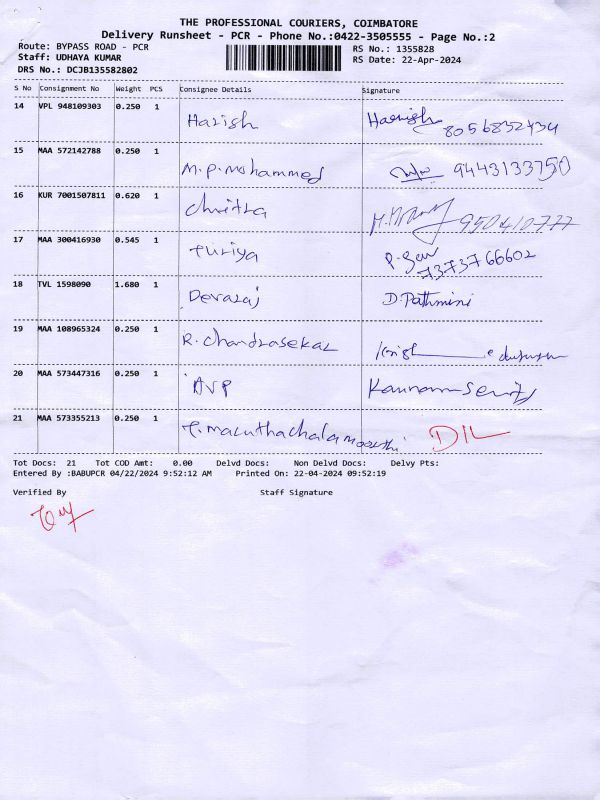 THE PROFESSIONAL COURIERS, COIMBATORE
Delivery Runsheet - PCR - Phone No.:0422-3505555 - Page No.:2
Route: BYPASS ROAD - PCR RS No.: 1355828
Staff: UDHAYA KUMAR RS Date: 22-Apr-2024
DRS No.: DCJB135582802
S No Consignment No Weight PCS Consignee Details Signature
14 VPL 948109303 0.250 1 Harish Harish 8056832434
15 MAA 572142788 0.250 1 M.P.Mohammed 9443133750
16 KUR 7001507811 0.620 1 Chritra
17 MAA 300416930 0.545 1 Turiya 7373766602
18 TVL 1598090 1.680 1 Devaraj D.Pathmini
19 MAA 108965324 0.250 1 R.Chandrasekar
20 MAA 573447316 0.250 1 AVP
21 MAA 573355213 0.250 1 DIL
Tot Docs: 21 Tot COD Amt: 0.00 Delvd Docs: Non Delvd Docs: Delvy Pts:
Entered By :BABUPCR 04/22/2024 9:52:12 AM Printed On: 22-04-2024 09:52:19
Verified By Staff Signature